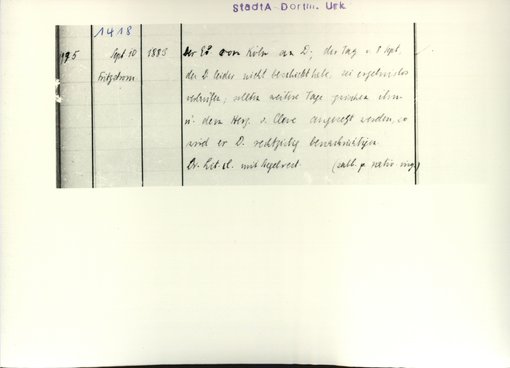 StadtA Dortm. Urk
1418
195 Sept 10 1883 der EB von Köln an D; der Tag v. 8 Sept,
Fritzstrom der D leider nicht beschickt habe, sei ergebnislos
verlaufen; sollten weitere Tage zwischen ihm
u. dem Herz. v. Cleve angesetzt werden, so
wird er D. rechtzeitig benachrichtigen.
Or. Lit. cl. mit Siegelrest. (sabb. p. nativ. mar.)